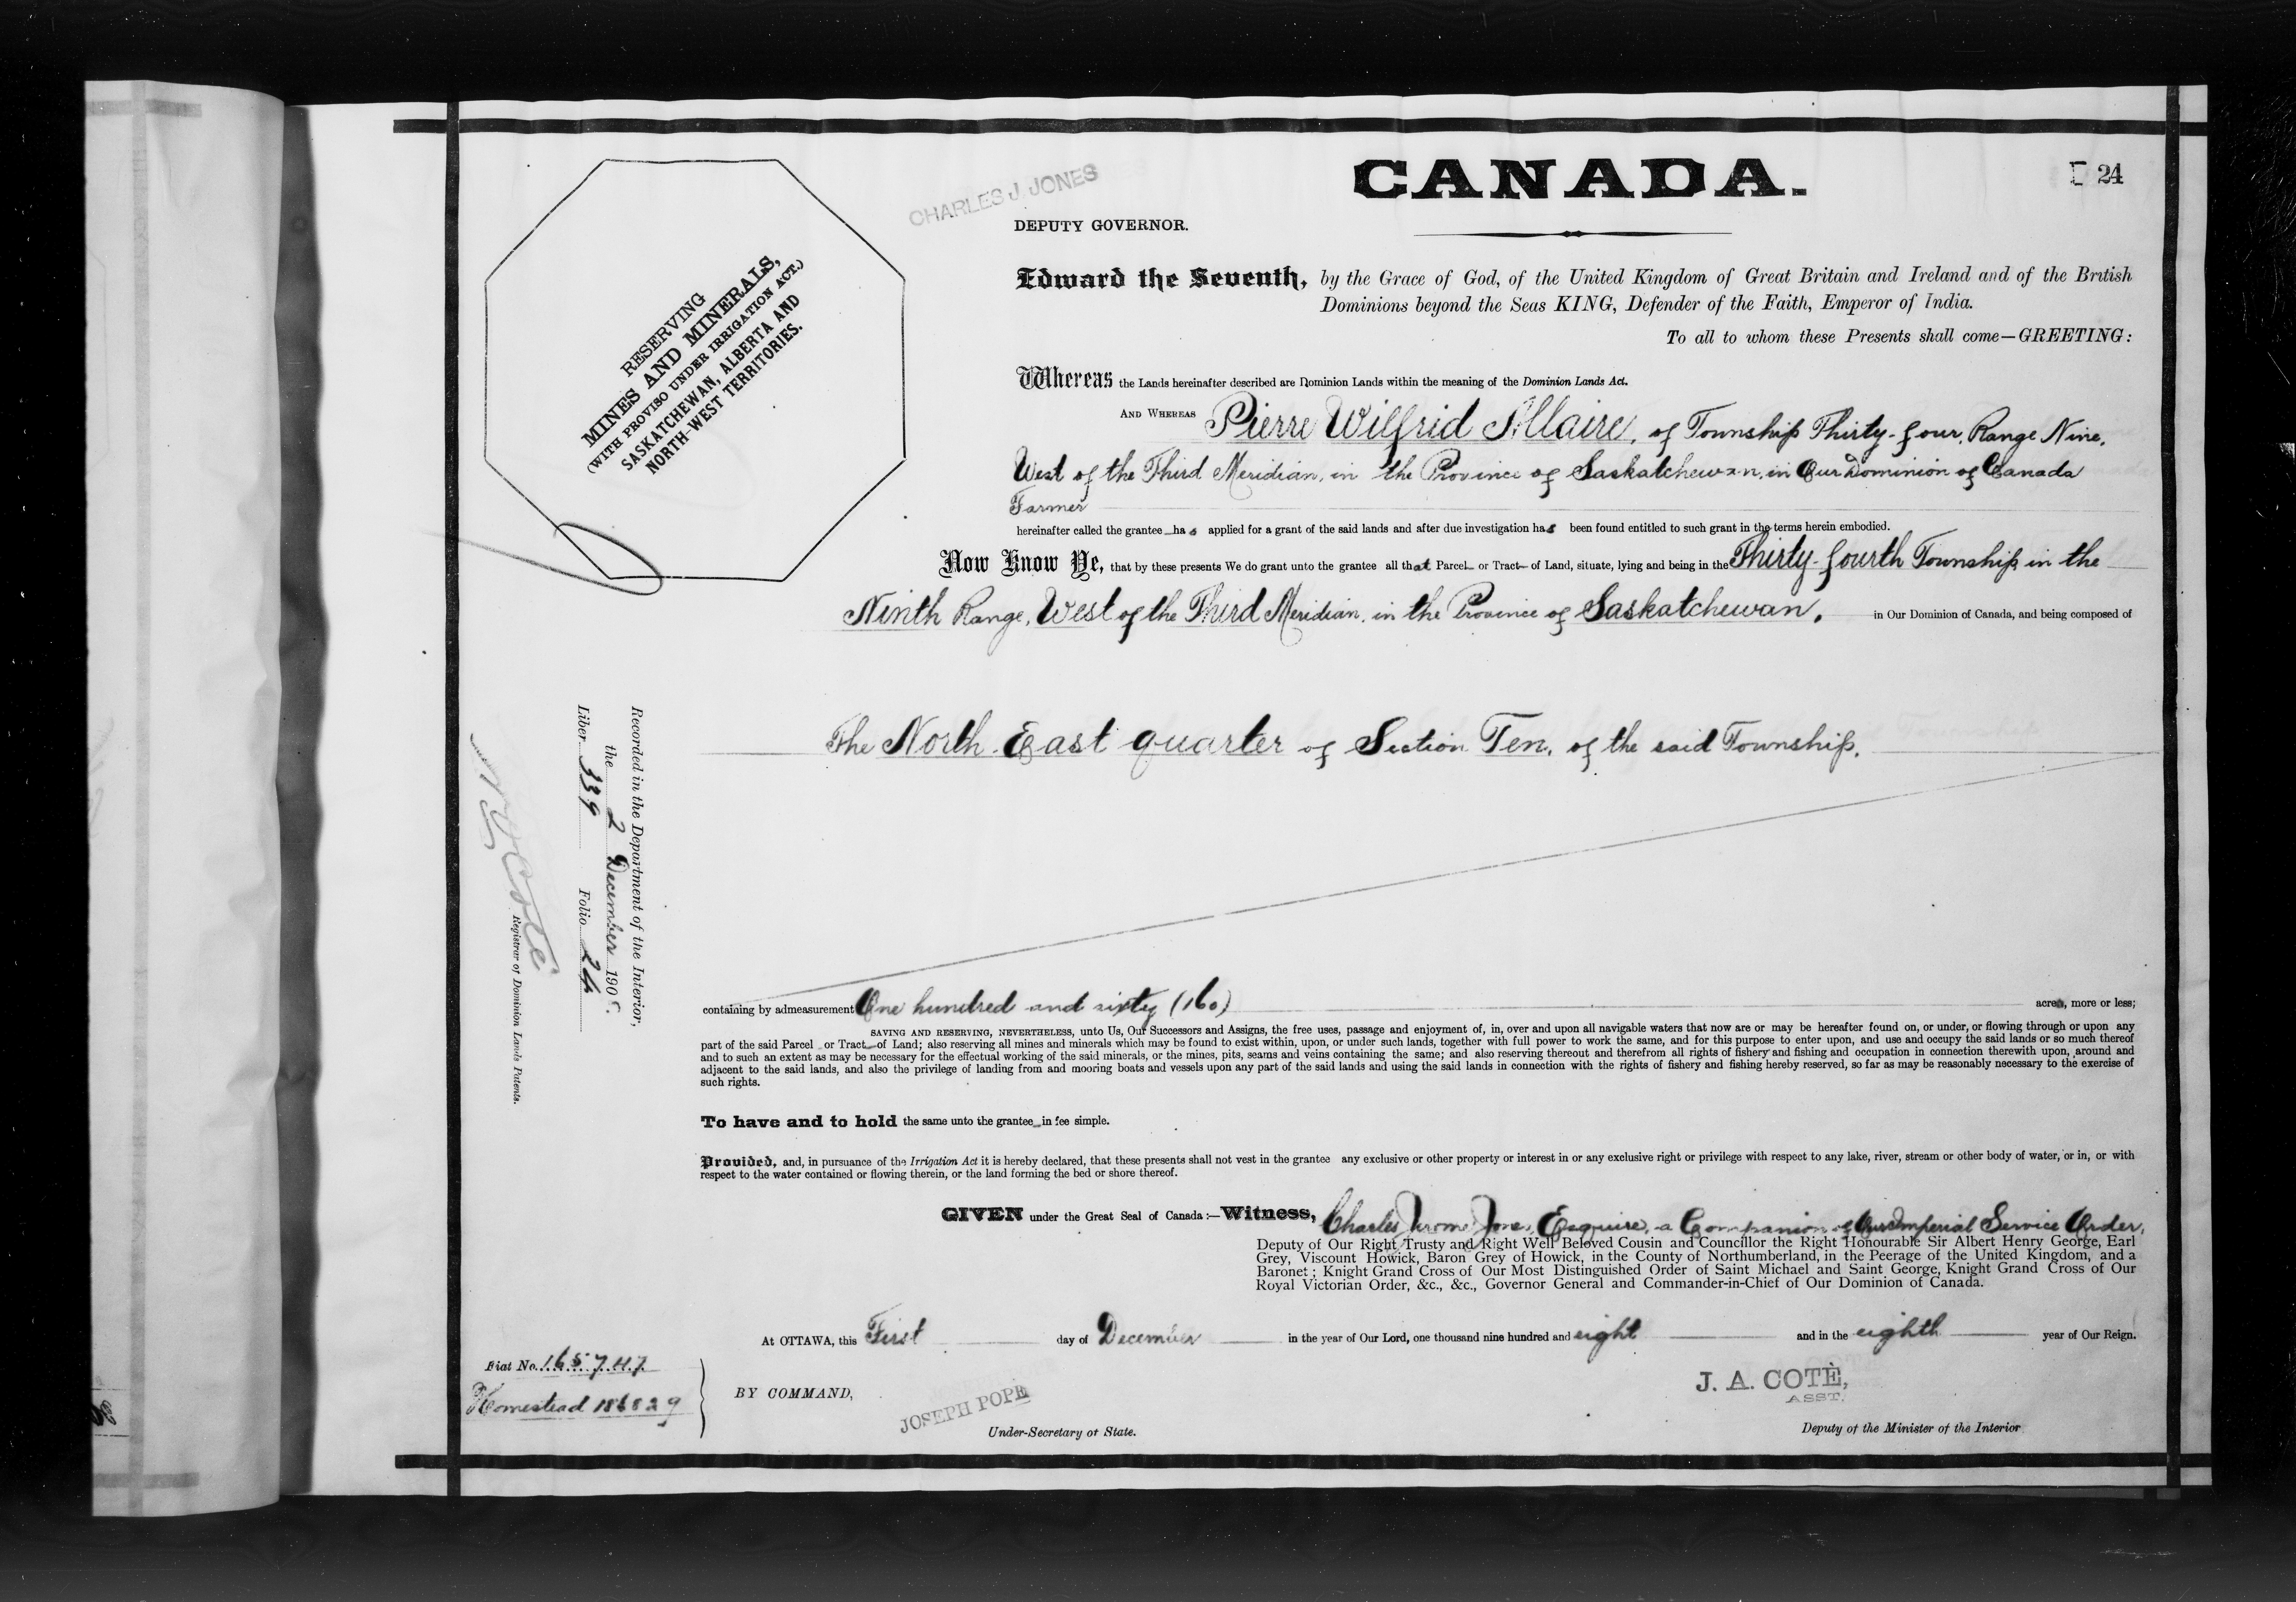 CANADA.
24
CHARLES J. JONES
DEPUTY GOVERNOR.
RESERVING
MINES AND MINERALS,
(WITH PROVISO UNDER IRRIGATION ACT.)
SASKATCHEWAN, ALBERTA AND
NORTH-WEST TERRITORIES.
Edward the Seventh, by the Grace of God, of the United Kingdom of Great Britain and Ireland and of the British
Dominions beyond the Seas KING, Defender of the Faith, Emperor of India.
To all to whom these Presents shall come—GREETING:
Whereas the Lands hereinafter described are Dominion Lands within the meaning of the Dominion Lands Act.
AND WHEREAS Pierre Wilfrid Allaire, of Township Thirty-four, Range Nine,
West of the Third Meridian, in the Province of Saskatchewan, in Our Dominion of Canada
Farmer
hereinafter called the grantee has applied for a grant of the said lands and after due investigation has been found entitled to such grant in the terms herein embodied.
Now Know Ye, that by these presents We do grant unto the grantee all that Parcel or Tract of Land, situate, lying and being in the Thirty-fourth Township in the
Ninth Range, West of the Third Meridian, in the Province of Saskatchewan, in Our Dominion of Canada, and being composed of
The North East quarter of Section Ten, of the said Township.
Recorded in the Department of the Interior,
the 2 December 190
Liber 339 Folio 24
N O Coté
Registrar of Dominion Lands Patents.
containing by admeasurement One hundred and sixty (160) acres, more or less;
SAVING AND RESERVING, NEVERTHELESS, unto Us, Our Successors and Assigns, the free uses, passage and enjoyment of, in, over and upon all navigable waters that now are or may be hereafter found on, or under, or flowing through or upon any
part of the said Parcel or Tract of Land; also reserving all mines and minerals which may be found to exist within, upon, or under such lands, together with full power to work the same, and for this purpose to enter upon, and use and occupy the said lands or so much thereof
and to such an extent as may be necessary for the effectual working of the said minerals, or the mines, pits, seams and veins containing the same; and also reserving thereout and therefrom all rights of fishery and fishing and occupation in connection therewith upon, around and
adjacent to the said lands, and also the privilege of landing from and mooring boats and vessels upon any part of the said lands and using the said lands in connection with the rights of fishery and fishing hereby reserved, so far as may be reasonably necessary to the exercise of
such rights.
To have and to hold the same unto the grantee in fee simple.
Provided, and, in pursuance of the Irrigation Act it is hereby declared, that these presents shall not vest in the grantee any exclusive or other property or interest in or any exclusive right or privilege with respect to any lake, river, stream or other body of water, or in, or with
respect to the water contained or flowing therein, or the land forming the bed or shore thereof.
GIVEN under the Great Seal of Canada:—Witness, Charles Jerome Jones, Esquire, a Companion of Our Imperial Service Order,
Deputy of Our Right Trusty and Right Well Beloved Cousin and Councillor the Right Honourable Sir Albert Henry George, Earl
Grey, Viscount Howick, Baron Grey of Howick, in the County of Northumberland, in the Peerage of the United Kingdom, and a
Baronet; Knight Grand Cross of Our Most Distinguished Order of Saint Michael and Saint George, Knight Grand Cross of Our
Royal Victorian Order, &c., &c., Governor General and Commander-in-Chief of Our Dominion of Canada.
At OTTAWA, this First day of December in the year of Our Lord, one thousand nine hundred and eight and in the eighth year of Our Reign.
Fiat No. 165747
Homestead 186829
BY COMMAND,
JOSEPH POPE
Under-Secretary of State.
J. A. COTÉ,
ASST.
Deputy of the Minister of the Interior